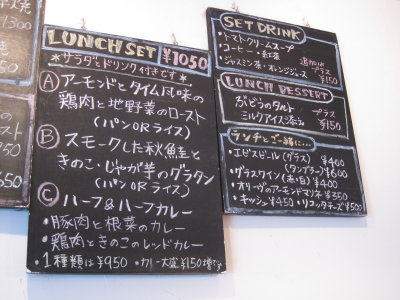 LUNCH SET ¥1050
*サラダとドリンク付きです*
Ⓐ アーモンドとタイム風味の
鶏肉と地野菜のロースト
(パン OR ライス)
Ⓑ スモークした秋鮭と
きのこ・じゃが芋のグラタン
(パン OR ライス)
Ⓒ ハーフ&ハーフカレー
・豚肉と根菜のカレー
・鶏肉ときのこのレッドカレー
・1種類は¥950 ・カレー大盛¥150増です
SET DRINK
・トマトクリームスープ
・コーヒー・紅茶
・ジャスミン茶・オレンジジュース
追加はプラス
¥150
LUNCH DESSERT
ぶどうのタルト
ミルクアイス添え
プラス
¥150
ランチとご一緒に…
・エビスビール(グラス) ¥400
(タンブラー) ¥600
・グラスワイン(赤・白) ¥400
・オリーヴのアーモンドマリネ ¥350
・キッシュ ¥450 ・リコッタチーズ ¥500
1300
550
650